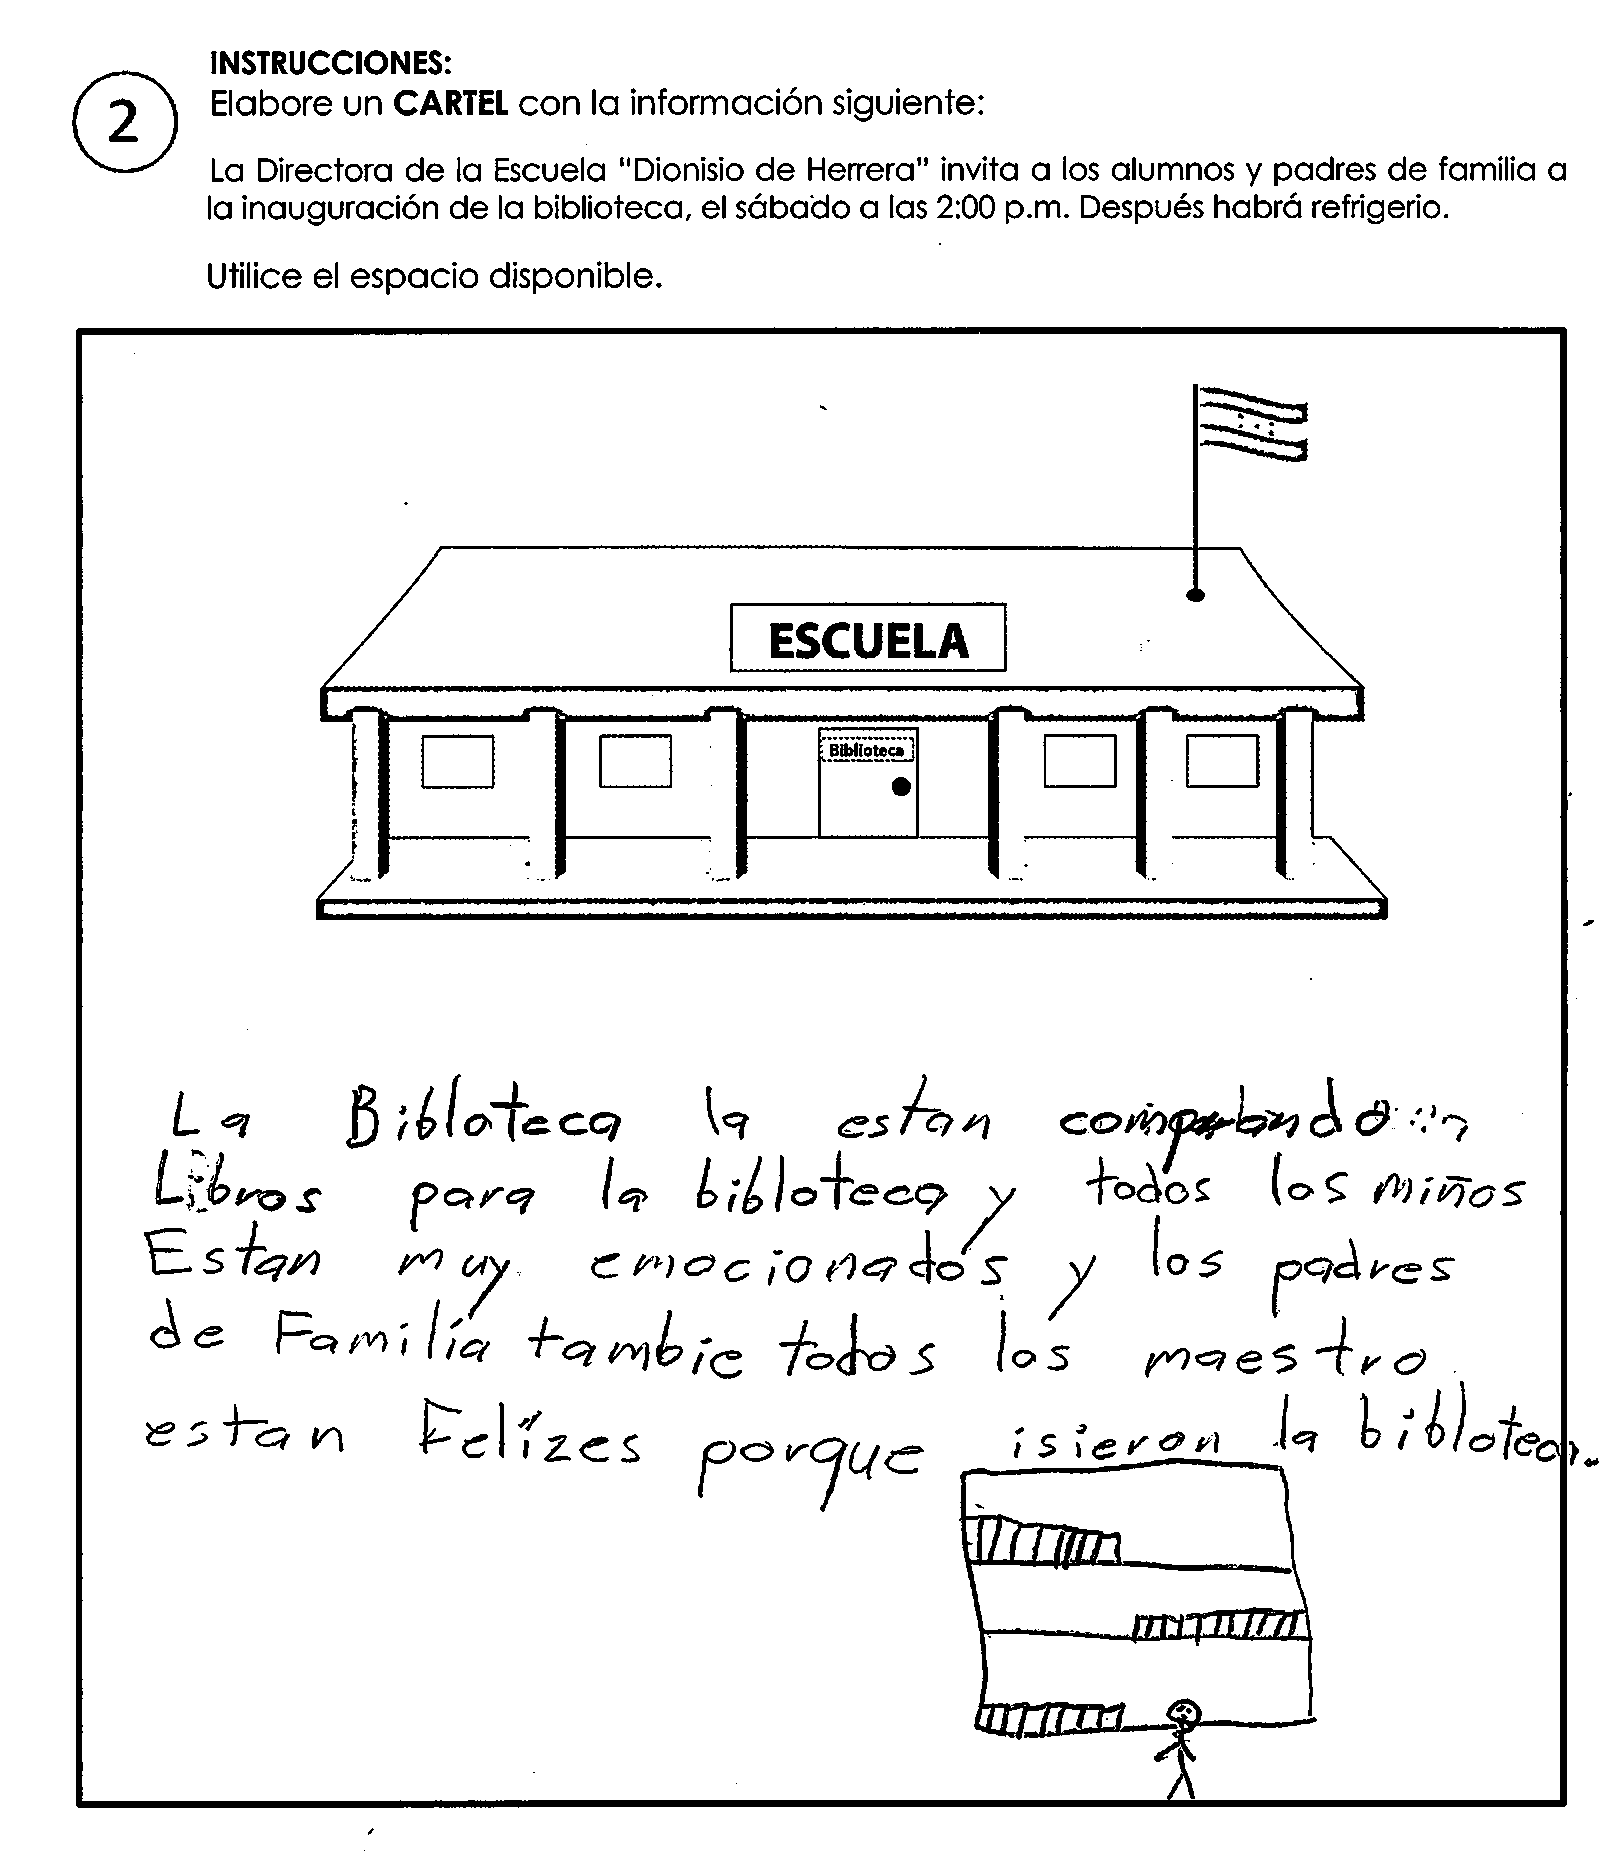 INSTRUCCIONES:
2
Elabore un CARTEL con la información siguiente:
La Directora de la Escuela "Dionisio de Herrera" invita a los alumnos y padres de familia a
la inauguración de la biblioteca, el sábado a las 2:00 p.m. Después habrá refrigerio.
Utilice el espacio disponible.
ESCUELA
Biblioteca
La Bibloteca la estan
Libros para la bibloteca y todos los miños
Estan muy emocionados y los padres
de Familia tambie todos los maestro
estan Felizes porque isieron la biblioteca.